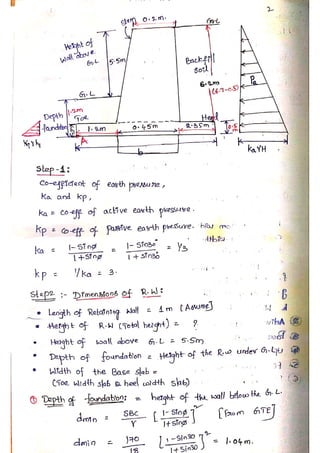 2
stem 0.2m.
G.L
Height of
wall above
G.L
5.5m
Backfill
soil
6.2m
(6.7-0.5)
Pa
G.L
1.2m
Depth
foundation
Toe
Heel
1.2m
0.45m
2.35m
0.5
A
b
kp γ h
ka γ H
Step-1:
Co-efficient of earth pressure,
Ka and kp,
ka = co-eff of active earth pressure.
kp = co-eff of passive earth pressure.
ka = 1-sinø / 1+sinø = 1-sin30 / 1+sin30 = 1/3
kp = 1/ka = 3.
Step2 :- Dimensions of R.W:
• Length of Retaining wall = 1m [Assume]
• Height of R.W (Total height) = ?
• Height of wall above G.L = 5.5m
• Depth of foundation = Height of the R.w under G.L
• Width of the Base slab =
(Toe width slab & heel width slab)
① Depth of foundation: = height of the wall below the G.L.
dmin = SBC / γ [1-sinø / 1+sinø]² [from GTE]
dmin = 170 / 18 [1-sin30 / 1+sin30]² = 1.04m.